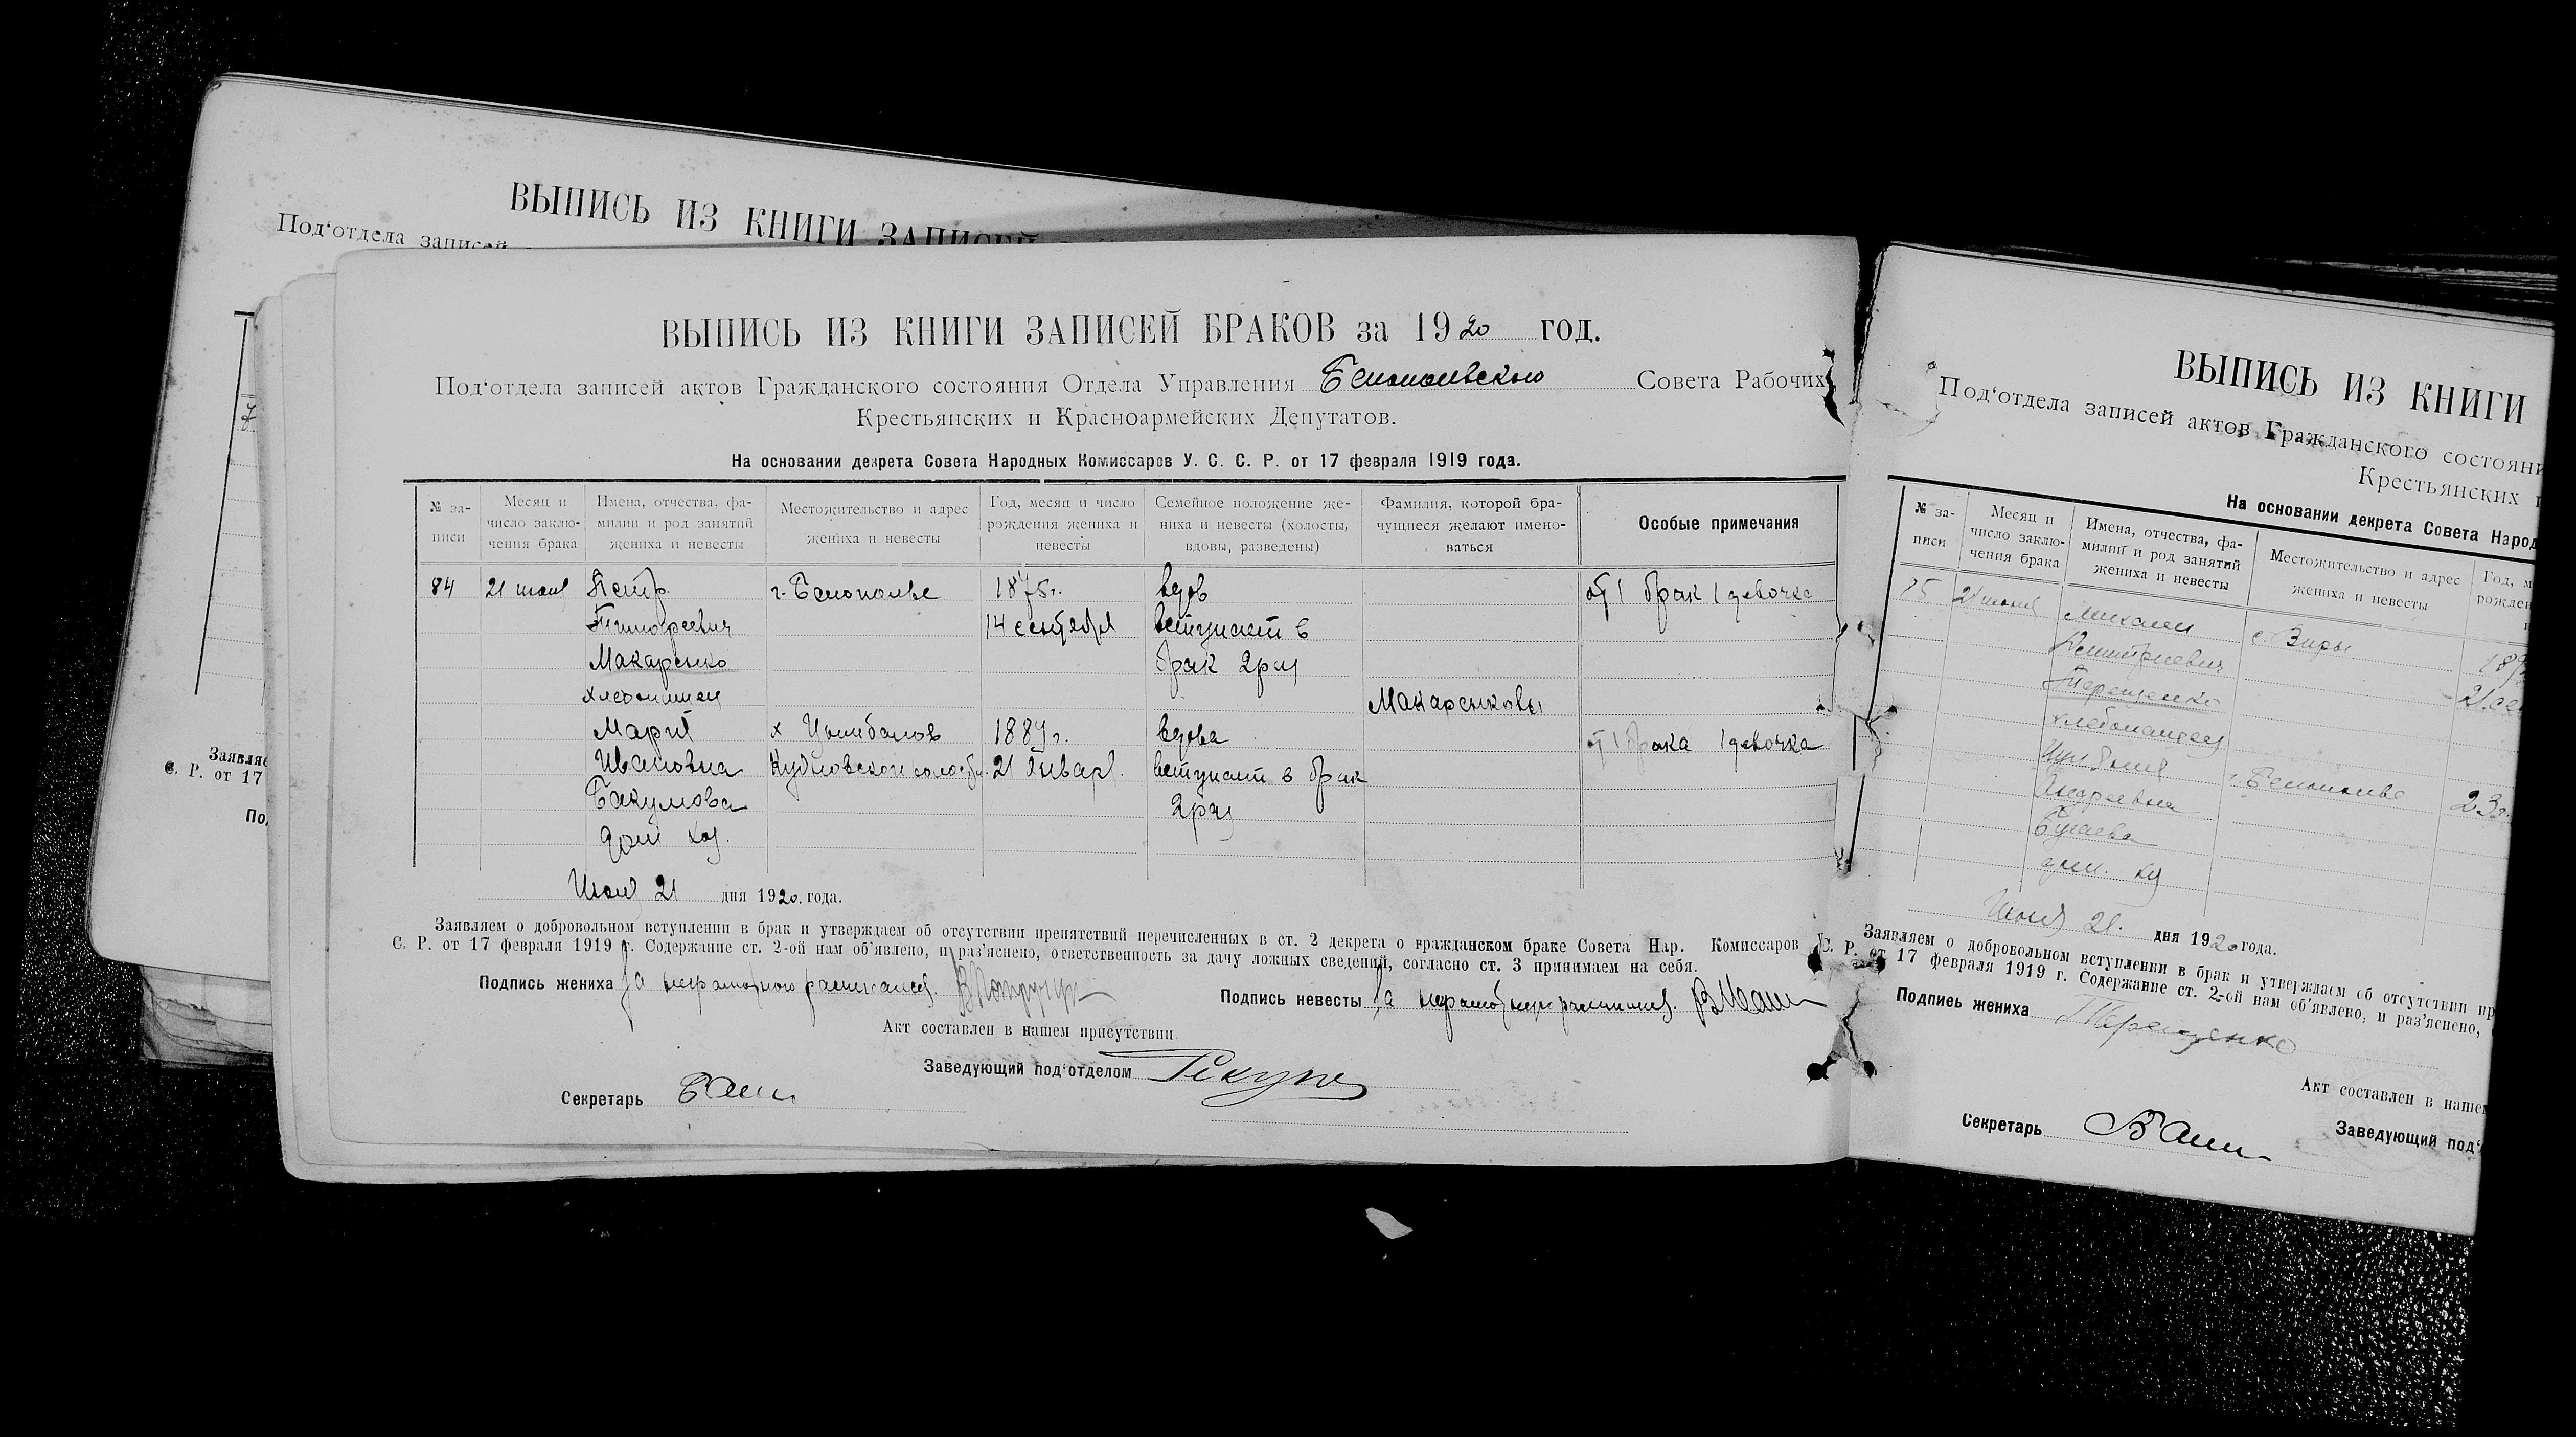 ВЫПИСЬ ИЗ КНИГИ ЗАПИСЕЙ
Под‘отдела записей
Заявляе
С. Р. от 17
По
ВЫПИСЬ ИЗ КНИГИ ЗАПИСЕЙ БРАКОВ за 1920 год.
Под‘отдела записей актов Гражданского состояния Отдела Управления Белопольского Совета Рабочих
Крестьянских и Красноармейских Депутатов.
На основании декрета Совета Народных Комиссаров У. С. С. Р. от 17 февраля 1919 года.
№ за-
писи
Месяц и
число заклю-
чения брака
Имена, отчества, фа-
милии и род занятий
жениха и невесты
Местожительство и адрес
жениха и невесты
Год, месяц и число
рождения жениха и
невесты
Семейное положение же-
ниха и невесты (холосты,
вдовы, разведены)
Фамилия, которой бра-
чущиеся желают имено-
ваться
Особые примечания
84 21 июня Петр г. Белополье 1875 г. вдов от 1 брак 1 девочка
Тимофеевич 14 сентября вступает в
Макаренко брак 2 раз
хлебопашец Макаренковы
Мария х Цымбалов 1889 г. вдова от 1 брака 1 девочка
Ивановна 21 января. вступает в брак
Бакумова 2 раз
дом хоз.
Июня 21 дня 1920. года.
Заявляем о добровольном вступлении в брак и утверждаем об отсутствии препятствий перечисленных в ст. 2 декрета о гражданском браке Совета Нар. Комиссаров У.
С. Р. от 17 февраля 1919 г. Содержание ст. 2-ой нам об‘явлено, и раз‘яснено, ответственность за дачу ложных сведений, согласно ст. 3 принимаем на себя.
Подпись жениха За неграмотного расписался.
Подпись невесты За неграмотную
Акт составлен в нашем присутствии
Заведующий под‘отделом
Секретарь
ВЫПИСЬ ИЗ КНИГИ
Под‘отдела записей актов Гражданского состояни
Крестьянских и
На основании декрета Совета Народ
№ за-
писи
Месяц и
число заклю-
чения брака
Имена, отчества, фа-
милии и род занятий
жениха и невесты
Местожительство и адрес
жениха и невесты
Год, м
рожден
85 21 июня Михаил с. Виры 189
Дмитриевич 21
Терещенко
хлебопашец
г. Белополье 23
Андреевна
дом. хоз
Июня 21. дня 1920 года.
Заявляем о добровольном вступлении в брак и утверждаем об отсутствии пр
С. Р. от 17 февраля 1919 г. Содержание ст. 2-ой нам об‘явлено, и раз‘яснено,
Подпись жениха Терещенко
Акт составлен в наше
Заведующий под‘
Секретарь